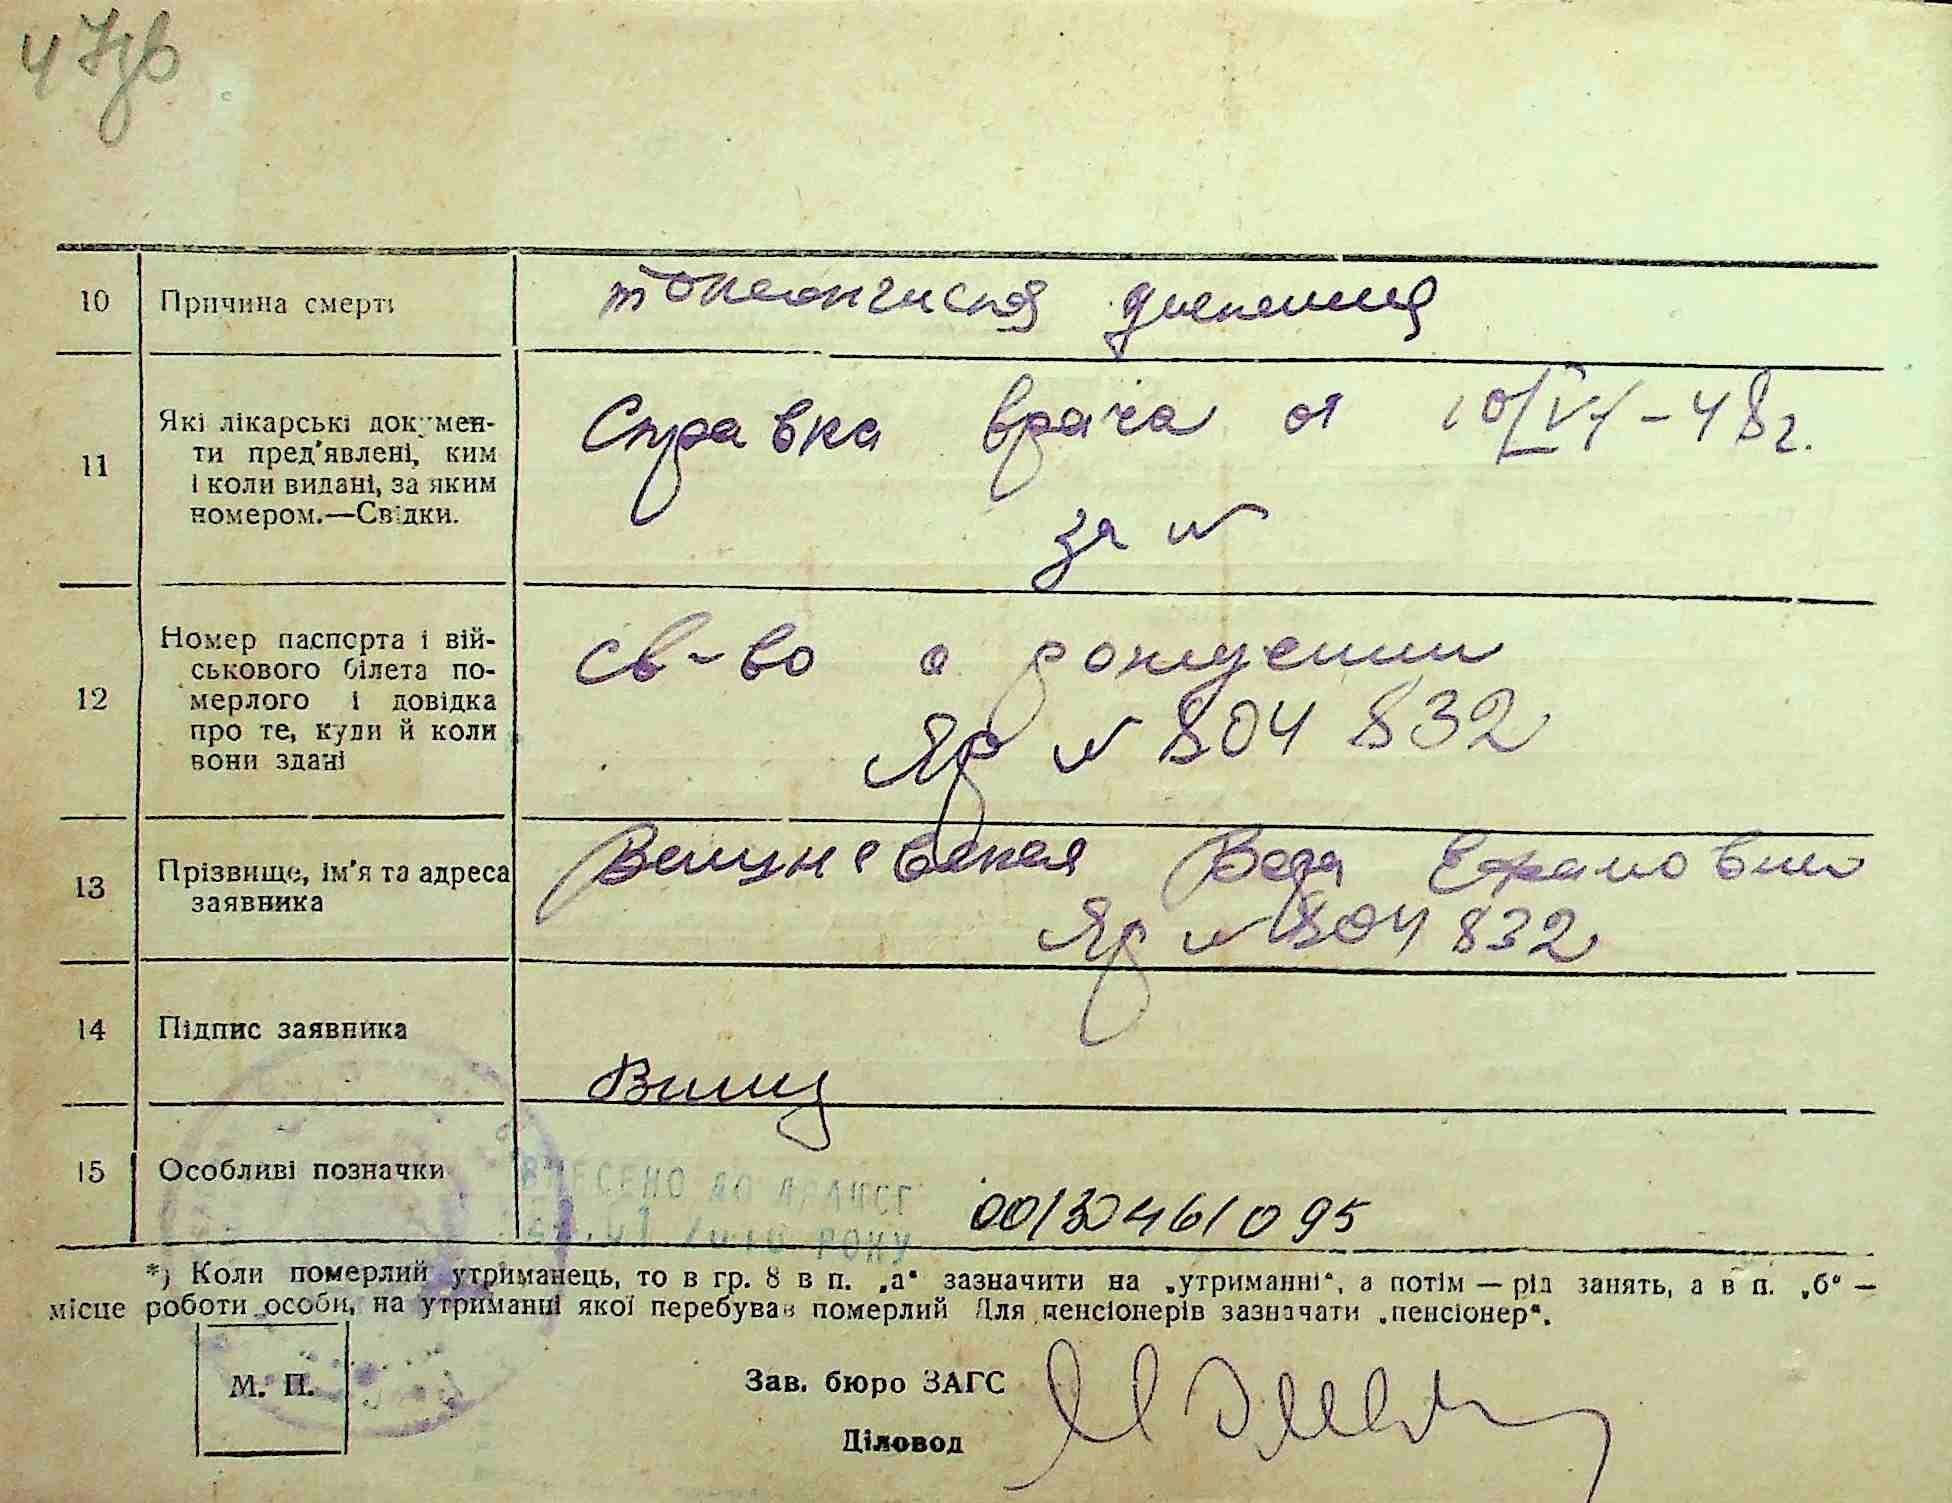 10 Причина смерті токсическая диспепсия
11 Які лікарські докумен-
ти пред'явлені, ким
і коли видані, за яким
номером.—Свідки.
Справка врача от 10/VI-48г.
за №
12 Номер паспорта і вій-
ськового білета по-
мерлого і довідка
про те, куди й коли
вони здані
св-во о рождении
ЯР № 804 832
13 Прізвище, ім'я та адреса
заявника
Вера
ЯР № 804 832
14 Підпис заявника
15 Особливі позначки
ВНЕСЕНО ДО ДРАЦСГ
РОКУ
00130461095
*) Коли померлий утриманець, то в гр. 8 в п. „а“ зазначити на „утриманні“, а потім — рід занять, а в п. „б“ —
місце роботи особи, на утриманні якої перебував померлий Для пенсіонерів зазначати „пенсіонер“.
М. П.
Зав. бюро ЗАГС
Діловод